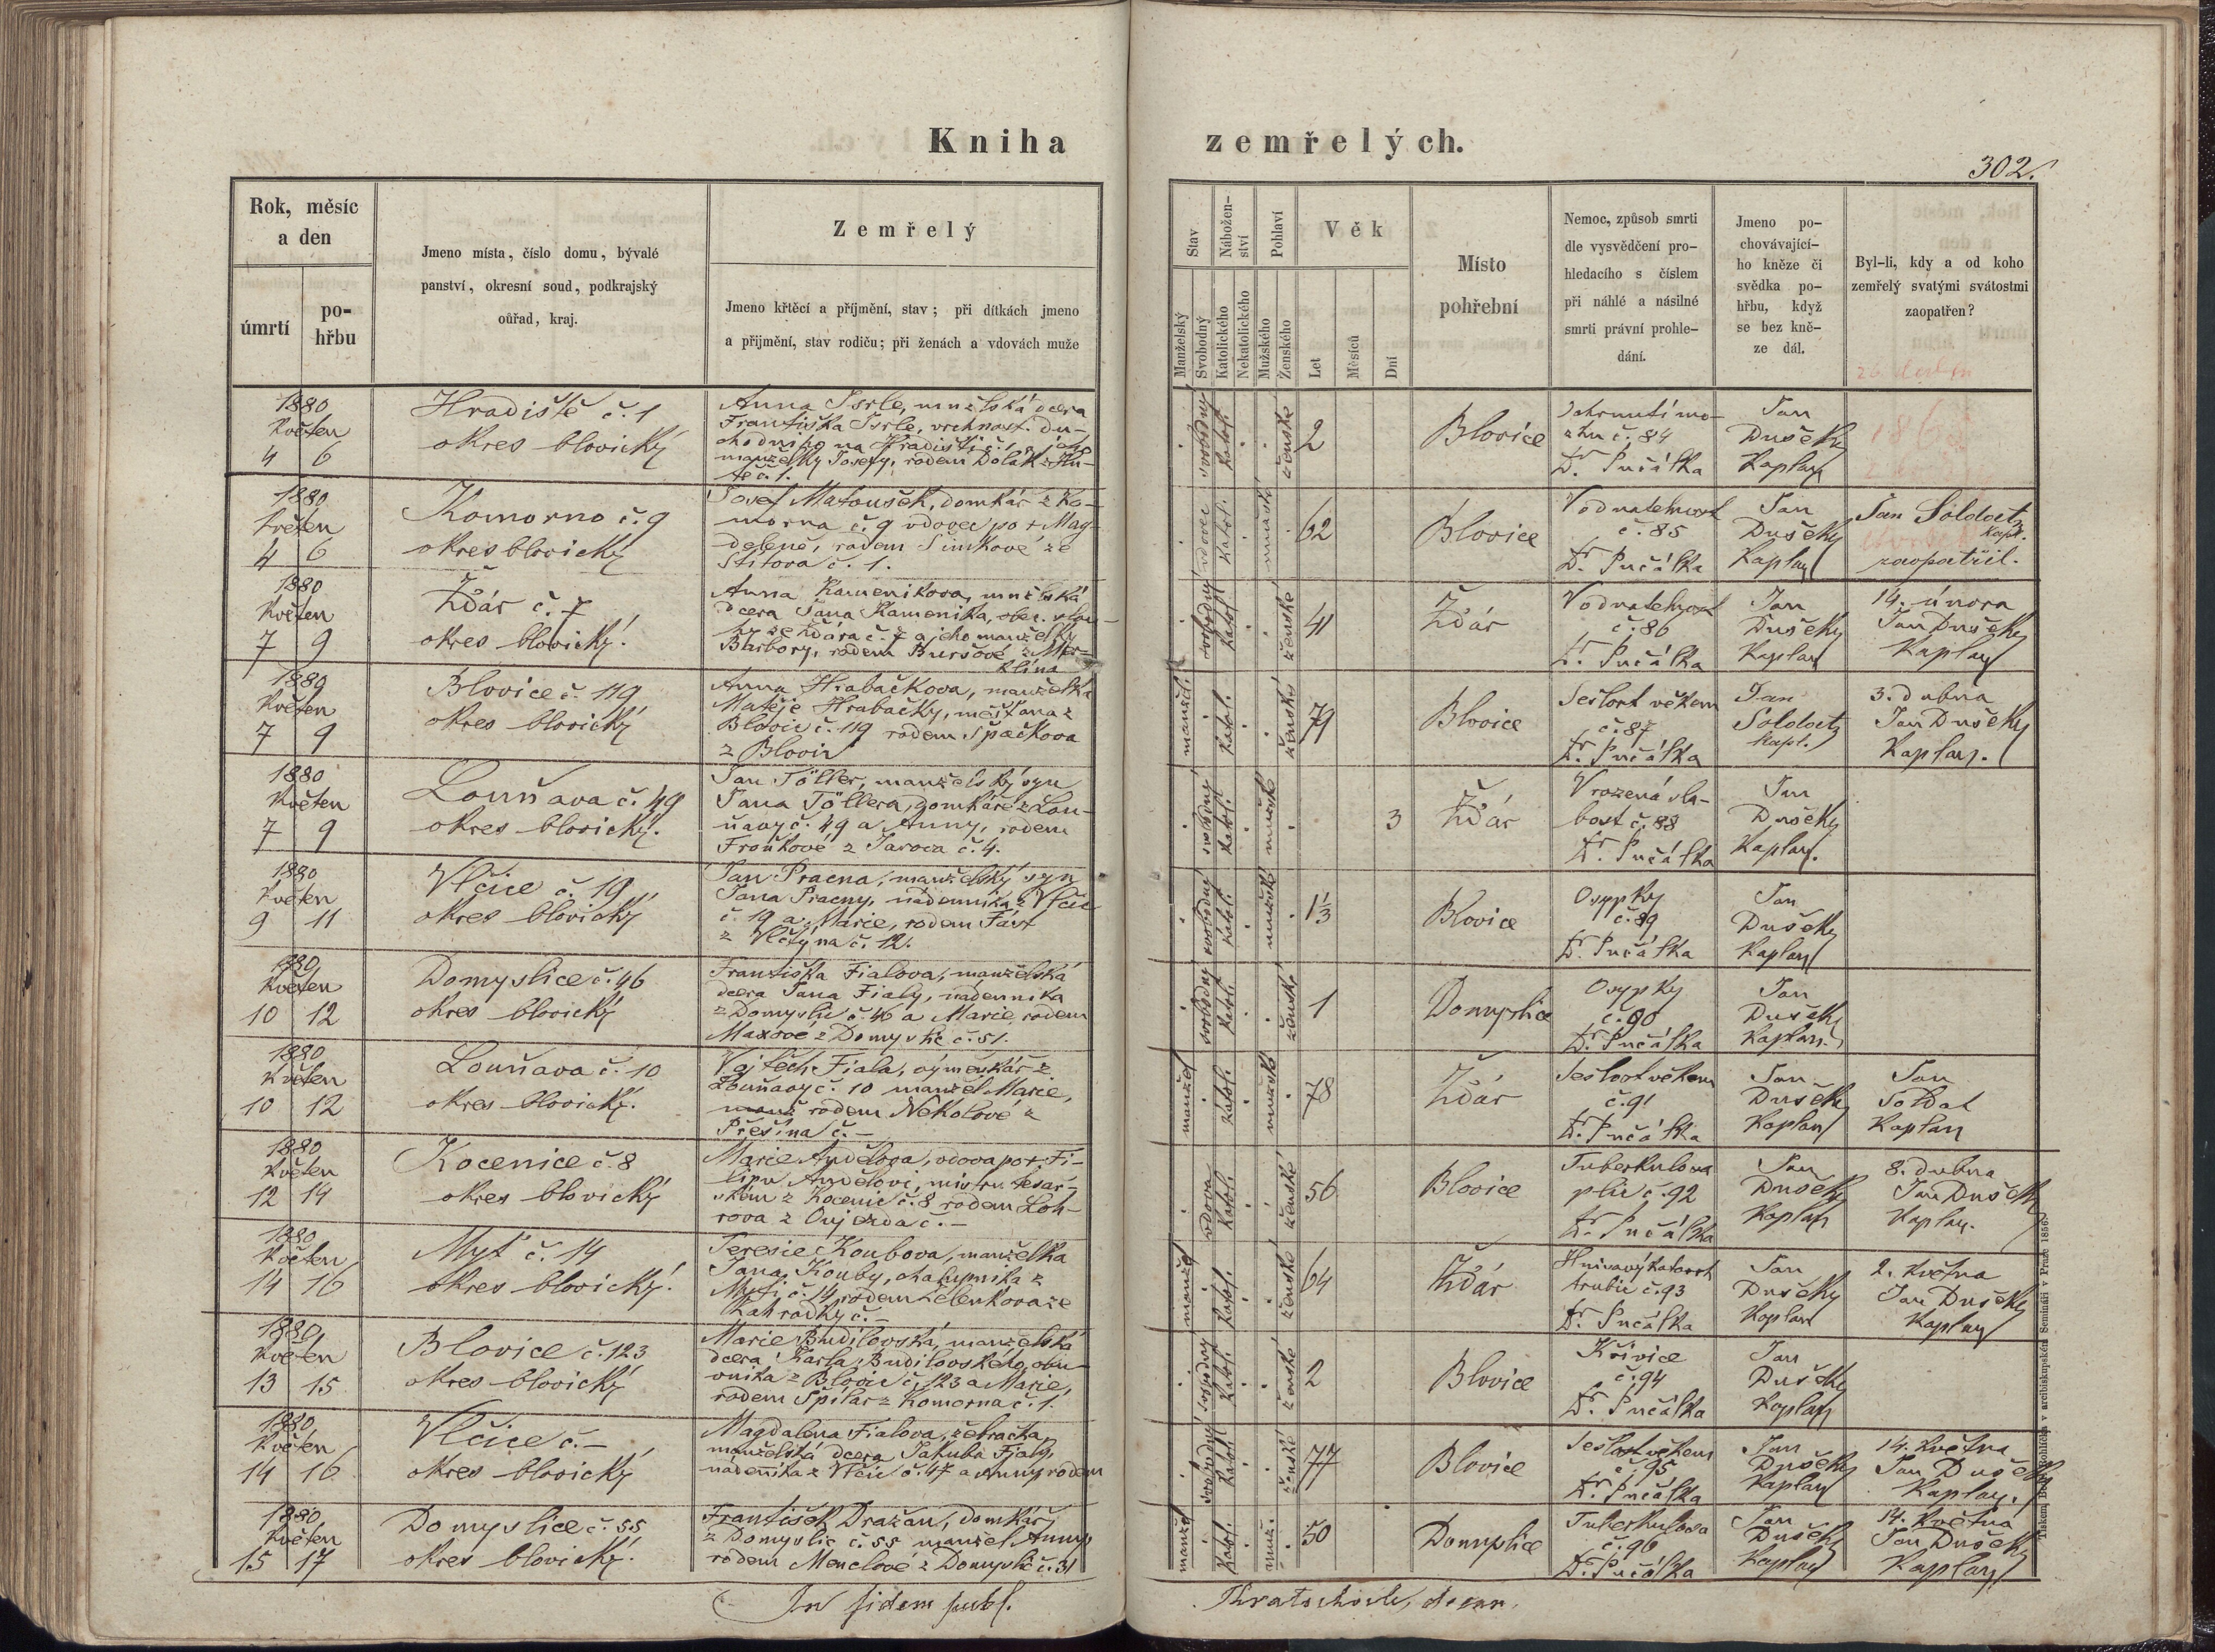 Kniha
zemřelých.
302.
Rok, měsíc
a den
úmrtí
po-
hřbu
Jmeno místa, číslo domu, bývalé
panství, okresní soud, podkrajský
oůřad, kraj.
Zemřelý
Jmeno křtěcí a příjmění, stav; při dítkách jmeno
a přijmění, stav rodiču; při ženách a vdovách muže
Stav
Manželský
Svobodný
Nábožen-
ství
Katolického
Nekatolického
Pohlaví
Mužského
Ženského
Věk
Let
Měsíců
Dní
Místo
pohřební
Nemoc, způsob smrti
dle vysvědčení pro-
hledacího s číslem
při náhlé a násilné
smrti právní prohle-
dání.
Jmeno po-
chovávající-
ho kněze či
svědka po-
hřbu, když
se bez kně-
ze dál.
Byl-li, kdy a od koho
zemřelý svatými svátostmi
zaopatřen?
1880
Květen
4 6
Hradiště č. 1
okres blovický
Anna Isrle, mnželská dcera
Františka Isrle, vrchnost. dů-
chodního na Hradišti č. 1 a jeho
manželky Josefy, rodem Dolák z Hu-
tě č. 1.
svobodný
katol.
ženské
2
Blovice
mo-
zku č. 84
Dr. Pučálka
Jan
Dušek
Kaplan
1880
Květen
4 6
Komorno č. 9
okres blovický
Josef Matoušek, domkář z Ko-
morna č. 9 vdovec po † Mag-
deleně, rodem Šimkové ze
Štítova č. 1.
vdovec
katol.
mužské
62
Blovice
Vodnatelnost
č. 85
Dr. Pučálka
Jan
Dušek
Kaplan
Jan Soldat
Kapl.
zaopatřil.
1880
Květen
7 9
Ždár č. 7
okres blovický.
Anna Kamenikova, mnželská
dcera Jana Kamenika, obec. slou-
hy ze Ždára č. 7 a jeho manželky
Barbory, rodem Buršové z Mer-
klína
svobodný
katol.
ženské
41
Ždár
Vodnatelnost
č. 86
Dr. Pučálka
Jan
Dušek
Kaplan
14. února
Jan Dušek
Kaplan
1880
Květen
7 9
Blovice č. 119
okres blovický
Anna Hrabačkova, manželka
Matěje Hrabačky, měšťana z
Blovic č. 119 rodem Špačkova
z Blovic
manžel.
katol.
ženský
79
Blovice
Sešlost věkem
č. 87
Dr. Pučálka
Jan
Soldat
kapl.
3. dubna
Jan Dušek
Kaplan.
1880
Květen
7 9
Louňava č. 49
okres blovický.
Jan Töller, manželský syn
Jana Töllera, domkáře z Lou-
ňavy č. 49 a Anny, rodem
Froňkové z Jarova č. 4.
svobodný
katol.
mužské
3
Ždár
Vrozená sla-
bost č. 88
Dr. Pučálka
Jan
Dušek
Kaplan.
1880
Květen
9 11
Vlčice č. 19
okres blovický
Jan Pracna, manželský syn
Jana Pracny, nádenníka z Vlčic
č. 19 a Marie, rodem Fást
z Vlčtýna č. 12.
svobodný
katol.
mužské
1 1/3
Blovice
Osypky
č. 89
Dr. Pučálka
Jan
Dušek
Kaplan
1880
Květen
10 12
Domyslice č. 46
okres blovický
Františka Fialova, manželská
dcera Jana Fialy, nádenníka
z Domyslic č. 46 a Marie, rodem
Maxové z Domyslic č. 51.
svobodný
katol.
ženské
1
Domyslice
Osypky
č. 90
Dr. Pučálka
Jan
Dušek
Kaplan.
1880
Květen
10 12
Louňava č. 10
okres blovický.
Vojtěch Fiala, výměnkář z
Louňavy č. 10 manžel Marie,
rodem Nekolové z
Přešína č. –
manžel
katol.
mužské
78
Ždár
Sešlost věkem
č. 91
Dr. Pučálka
Jan
Dušek
Kaplan
Jan
Soldat
Kaplan
1880
Květen
12 14
Kocenice č. 8
okres blovický
Marie Andělova, vdova po † Fi-
lipu Andělovi, mistru tesař-
ském z Kocenic č. 8 rodem Loh-
rova z Oujezda č. –
vdova
katol.
ženské
56
Blovice
Tuberkulosa
plic č. 92
Dr. Pučálka
Jan
Dušek
Kaplan
8. dubna
Jan Dušek
Kaplan.
1880
Květen
14 16
Myť č. 14
okres blovický.
Teresie Koubova, manželka
Jana Kouby, chalupníka z
Myti č. 14 rodem Zelenkova ze
Zahradky č. –
manžel
katol.
ženské
64
Ždár
Hnisavý katarrh
trubic č. 93
Dr. Pučálka
Jan
Dušek
Kaplan
2. Května
Jan Dušek
Kaplan
1880
Květen
13 15
Blovice č. 123
okres blovický
Marie Budilovská, manželská
dcera Karla Budilovského, obu-
vníka z Blovic č. 123 a Marie,
rodem Špilar z Komorna č. 1.
svobodný
katol.
ženské
2
Blovice
Křivice
č. 94
Dr. Pučálka
Jan
Dušek
Kaplan
1880
Květen
14 16
Vlčice č. –
okres blovický
Magdalena Fialova, žebračka,
manželská dcera Jakuba Fialy,
nádeníka z Vlčic č. 47 a Anny rodem
svobodný
katol.
ženské
77
Blovice
Sešlost věkem
č. 95
Dr. Pučálka
Jan
Dušek
Kaplan
14. Května
Jan Dušek
Kaplan.
1880
Květen
15 17
Domyslice č. 55
okres blovický.
František Dražan, domkář
z Domyslic č. 55 manžel Anny
rodem Menclové z Domyslic č. 31
manžel
katol.
muž.
50
Domyslice
Tuberkulosa
č. 96
Dr. Pučálka
Jan
Dušek
Kaplan
14. Května
Jan Dušek
Kaplan
In fidem publ.